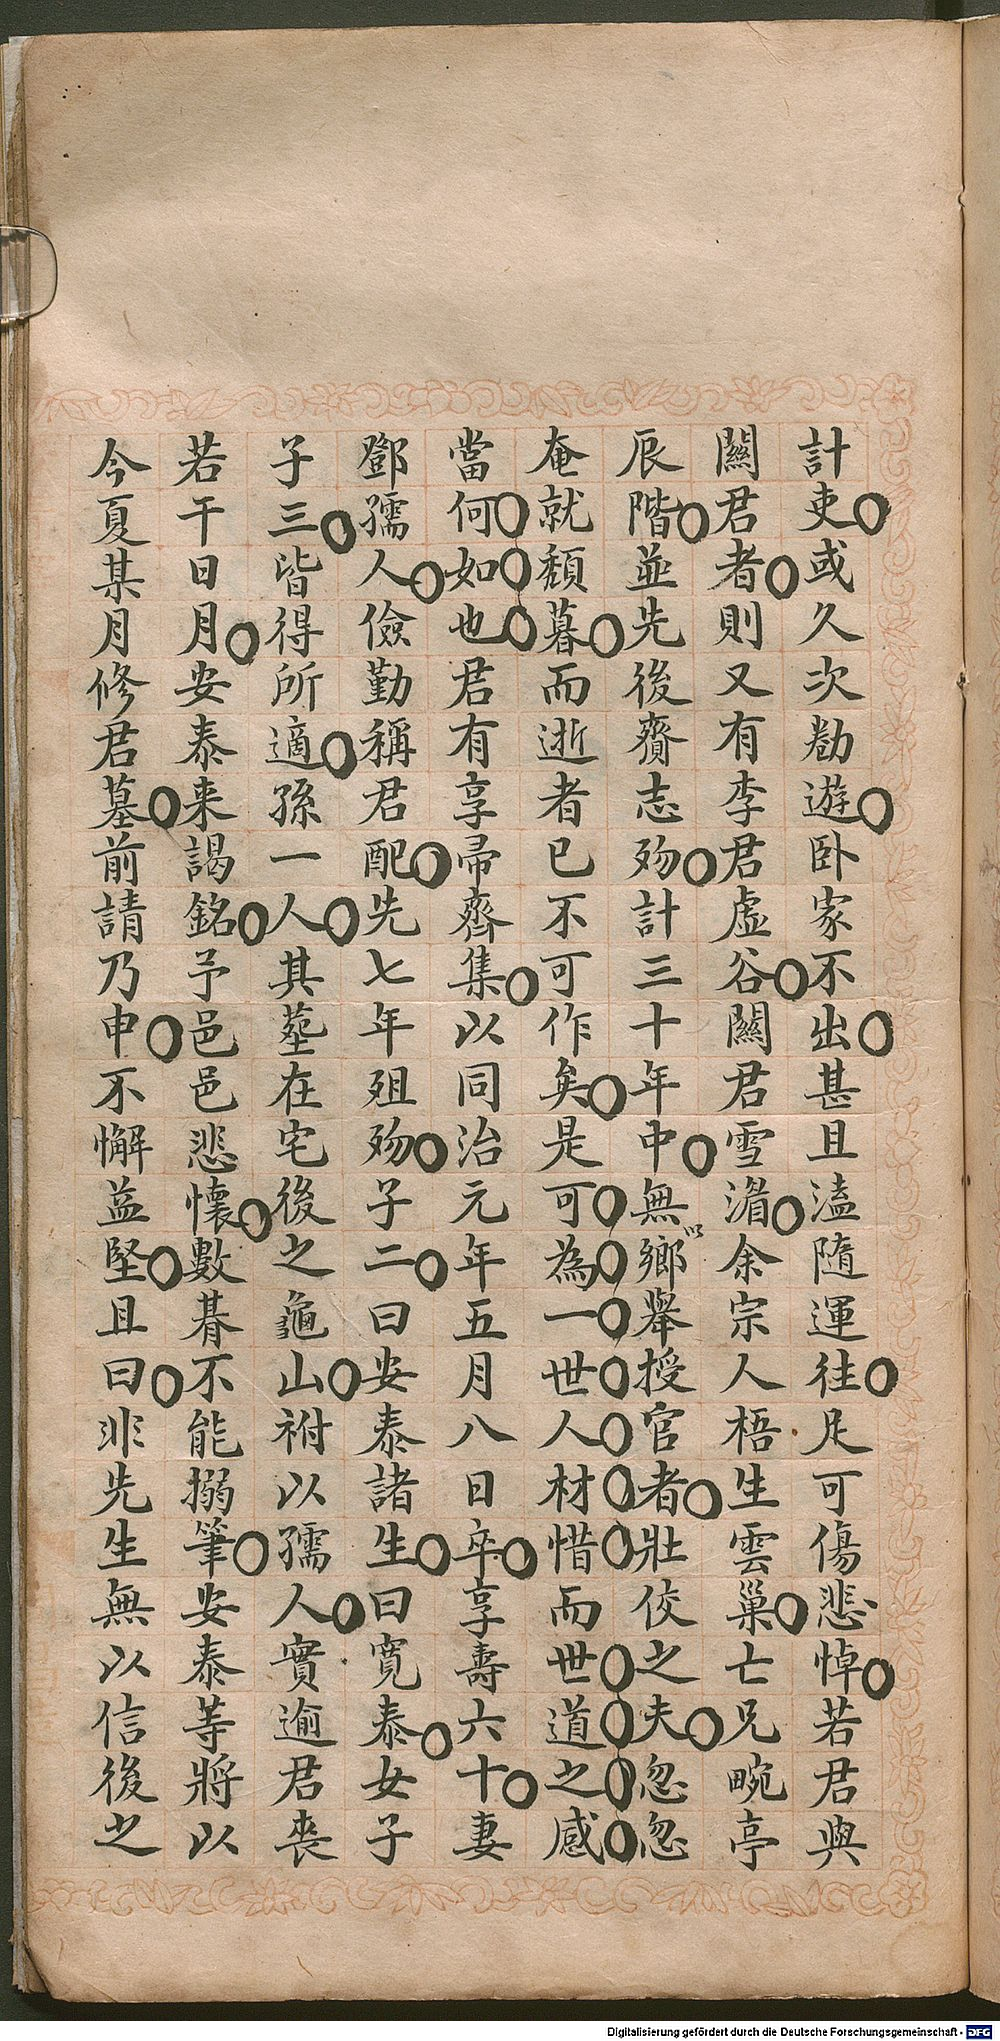 計吏或久次勌遊卧家不出甚且溘隨運往足可傷悲悼若君與
闗君者則又有李君虛谷闗君雪湄余宗人梧生雲巢亡兄畹亭
辰階並先後齎志歿計三十年中無以鄉舉授官者壯佼之夫忽忽
奄就頹暮而逝者已不可作矣是可為一世人材惜而世道之感
當何如也君有享帚齋集以同治元年五月八日卒享壽六十妻
鄧孺人儉勤稱君配先七年殂歿子二曰安泰諸生曰寬泰女子
子三皆得所適孫一人其墓在宅後之龜山祔以孺人實逾君喪
若干日月安泰来謁銘予邑邑悲懷數朞不能搦筆安泰等將以
今夏某月修君墓前請乃申不懈益堅且曰非先生無以信後之
Digitalisierung gefördert durch die Deutsche Forschungsgemeinschaft - DFG